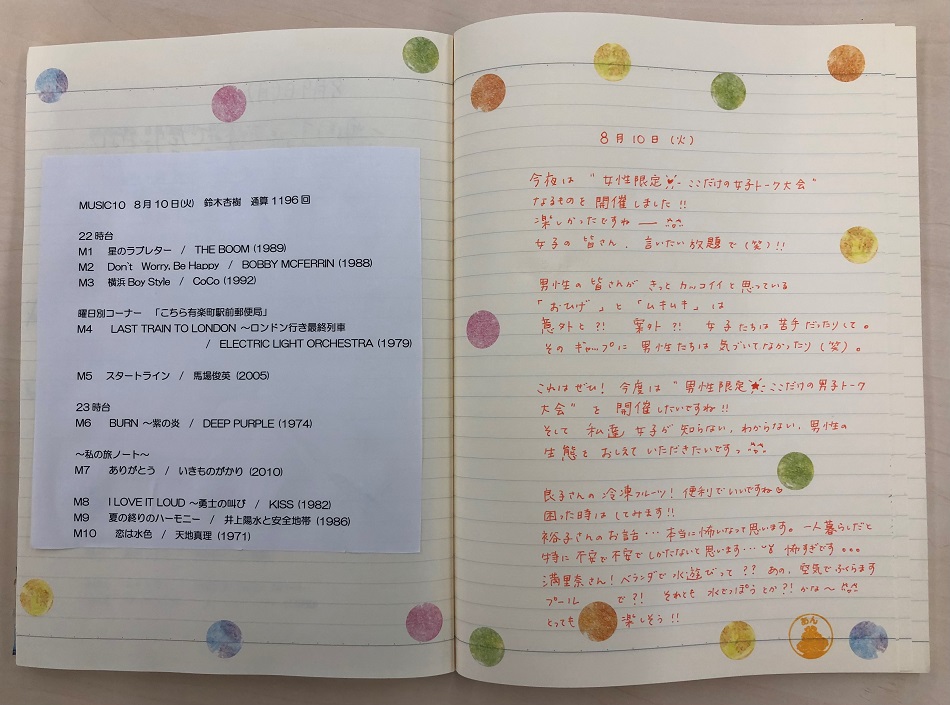 MUSIC10 8月10日(火) 鈴木杏樹 通算1196回
22時台
M1 星のラブレター / THE BOOM (1989)
M2 Don't Worry, Be Happy / BOBBY MCFERRIN (1988)
M3 横浜 Boy Style / CoCo (1992)
曜日別コーナー 「こちら有楽町駅前郵便局」
M4 LAST TRAIN TO LONDON ～ロンドン行き最終列車
/ ELECTRIC LIGHT ORCHESTRA (1979)
M5 スタートライン / 馬場俊英 (2005)
23時台
M6 BURN ～紫の炎 / DEEP PURPLE (1974)
～私の旅ノート～
M7 ありがとう / いきものがかり (2010)
M8 I LOVE IT LOUD ～勇士の叫び / KISS (1982)
M9 夏の終りのハーモニー / 井上陽水と安全地帯 (1986)
M10 恋は水色 / 天地真理 (1971)
8月10日 (火)
今夜は "女性限定 ここだけの女子トーク大会"
なるものを 開催しました!!
楽しかったですねー
女子の皆さん、言いたい放題で (笑)!!
男性の皆さんが きっと カッコイイと思っている
「おひげ」と「ムキムキ」は
意外と?! 案外?! 女子たちは苦手だったりして。
そのギャップに 男性たちは気づいてなかったり (笑)。
これはぜひ! 今度は "男性限定 ここだけの男子トーク
大会" を 開催したいですね!!
そして 私達 女子が知らない、わからない、男性の
生態を おしえて いただきたいですっ
良子さんの 冷凍フルーツ! 便利でいいですね
困った時は してみます!!
裕子さんのお話… 本当に怖いなって思います。一人暮らしだと
特に 不安で不安でしかたないと思います… 怖すぎです。。。
満里奈さん! ベランダで 水遊びって?? あの、空気でふくらます
プール で?! それとも 水でっぽうとか?! かな～
とっても 楽しそう!!
あん